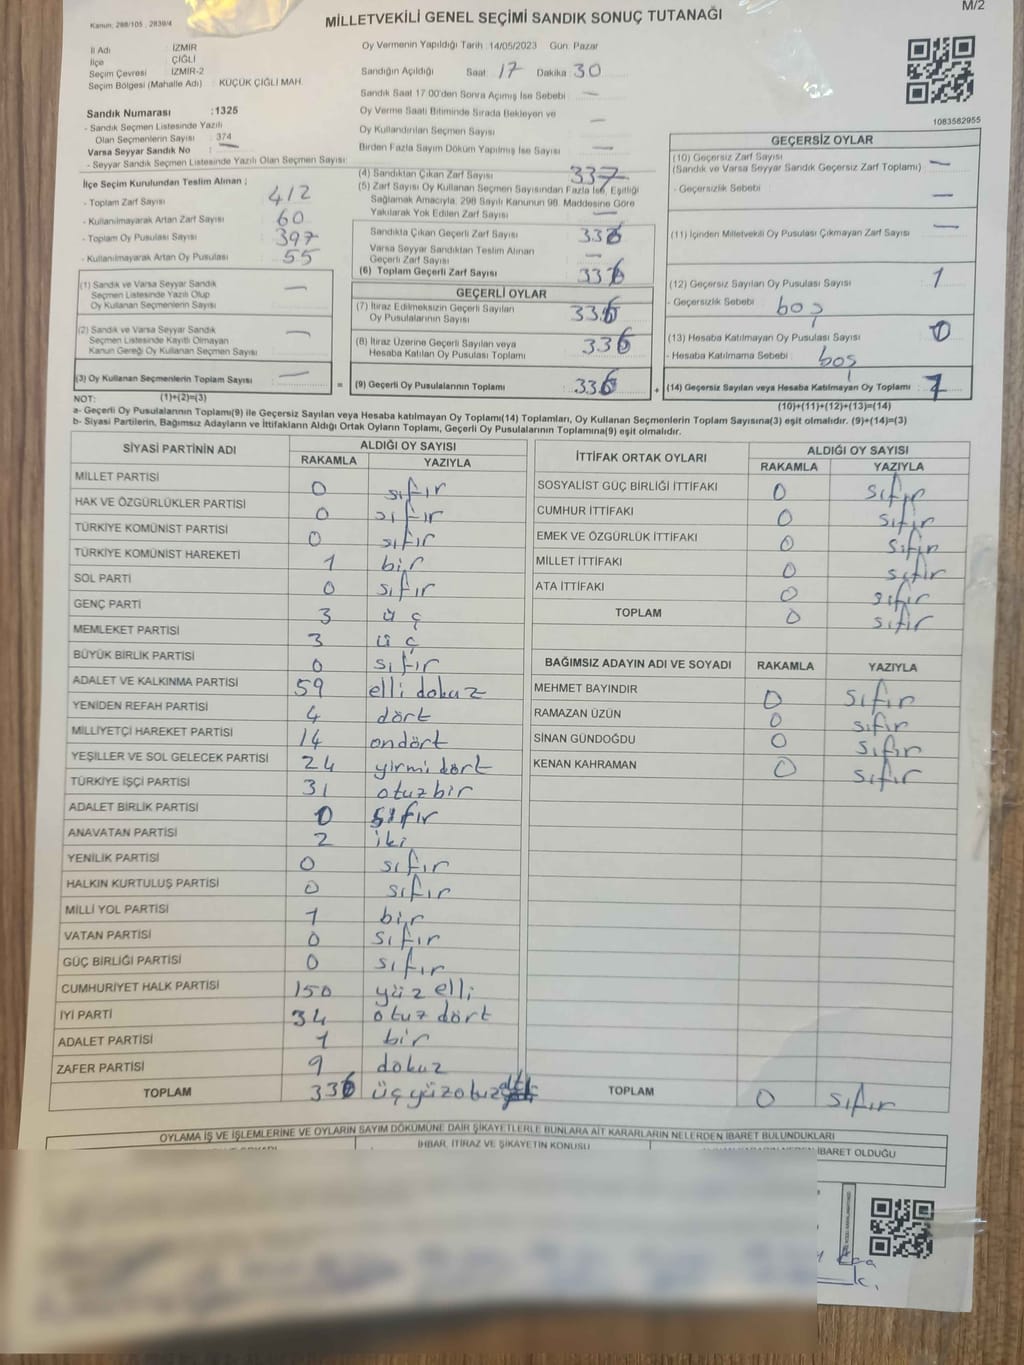 Kanun: 298/105 , 2839/4
MİLLETVEKİLİ GENEL SEÇİMİ SANDIK SONUÇ TUTANAĞI
M/2
İl Adı İZMİR
İlçe ÇİĞLİ
Seçim Çevresi İZMİR-2
Seçim Bölgesi (Mahalle Adı) KÜÇÜK ÇİĞLİ MAH.
Sandık Numarası :1325
- Sandık Seçmen Listesinde Yazılı
Olan Seçmenlerin Sayısı : 374
Varsa Seyyar Sandık No : —
- Seyyar Sandık Seçmen Listesinde Yazılı Olan Seçmen Sayısı:
Oy Vermenin Yapıldığı Tarih :14/05/2023 Gün: Pazar
Sandığın Açıldığı Saat: 17 Dakika: 30
Sandık Saat 17:00'den Sonra Açımış İse Sebebi : —
Oy Verme Saati Bitiminde Sırada Bekleyen ve
Oy Kullandırılan Seçmen Sayısı —
Birden Fazla Sayım Döküm Yapılmış İse Sayısı —
1083582955
İlçe Seçim Kurulundan Teslim Alınan ;
- Toplam Zarf Sayısı : 412
- Kullanılmayarak Artan Zarf Sayısı : 60
- Toplam Oy Pusulası Sayısı : 397
- Kullanılmayarak Artan Oy Pusulası : 55
(1) Sandık ve Varsa Seyyar Sandık
Seçmen Listesinde Yazılı Olup
Oy Kullanan Seçmenlerin Sayısı —
(2) Sandık ve Varsa Seyyar Sandık
Seçmen Listesinde Kayıtlı Olmayan
Kanun Gereği Oy Kullanan Seçmen Sayısı —
(3) Oy Kullanan Seçmenlerin Toplam Sayısı : —
NOT: (1)+(2)=(3)
(4) Sandıktan Çıkan Zarf Sayısı : 337
(5) Zarf Sayısı Oy Kullanan Seçmen Sayısından Fazla İse, Eşitliği
Sağlamak Amacıyla, 298 Sayılı Kanunun 98. Maddesine Göre
Yakılarak Yok Edilen Zarf Sayısı : —
Sandıkta Çıkan Geçerli Zarf Sayısı : 336
Varsa Seyyar Sandıktan Teslim Alınan
Geçerli Zarf Sayısı : —
(6) Toplam Geçerli Zarf Sayısı : 336
GEÇERLİ OYLAR
(7) İtiraz Edilmeksizin Geçerli Sayılan
Oy Pusulalarının Sayısı : 336
(8) İtiraz Üzerine Geçerli Sayılan veya
Hesaba Katılan Oy Pusulası Toplamı : 336
= (9) Geçerli Oy Pusulalarının Toplamı : 336 +
GEÇERSİZ OYLAR
(10) Geçersiz Zarf Sayısı
(Sandık ve Varsa Seyyar Sandık Geçersiz Zarf Toplamı) : —
- Geçersizlik Sebebi : —
(11) İçinden Milletvekili Oy Pusulası Çıkmayan Zarf Sayısı : —
(12) Geçersiz Sayılan Oy Pusulası Sayısı : 1
- Geçersizlik Sebebi : boş
(13) Hesaba Katılmayan Oy Pusulası Sayısı : 0
- Hesaba Katılmama Sebebi : boş
(14) Geçersiz Sayılan veya Hesaba Katılmayan Oy Toplamı : 1
(10)+(11)+(12)+(13)=(14)
a- Geçerli Oy Pusulalarının Toplamı(9) ile Geçersiz Sayılan veya Hesaba katılmayan Oy Toplamı(14) Toplamları, Oy Kullanan Seçmenlerin Toplam Sayısına(3) eşit olmalıdır. (9)+(14)=(3)
b- Siyasi Partilerin, Bağımsız Adayların ve İttifakların Aldığı Ortak Oyların Toplamı, Geçerli Oy Pusulalarının Toplamına(9) eşit olmalıdır.
SİYASİ PARTİNİN ADI ALDIĞI OY SAYISI
RAKAMLA YAZIYLA
MİLLET PARTİSİ 0 sıfır
HAK VE ÖZGÜRLÜKLER PARTİSİ 0 sıfır
TÜRKİYE KOMÜNİST PARTİSİ 0 sıfır
TÜRKİYE KOMÜNİST HAREKETİ 1 bir
SOL PARTİ 0 sıfır
GENÇ PARTİ 3 üç
MEMLEKET PARTİSİ 3 üç
BÜYÜK BİRLİK PARTİSİ 0 sıfır
ADALET VE KALKINMA PARTİSİ 59 elli dokuz
YENİDEN REFAH PARTİSİ 4 dört
MİLLİYETÇİ HAREKET PARTİSİ 14 ondört
YEŞİLLER VE SOL GELECEK PARTİSİ 24 yirmi dört
TÜRKİYE İŞÇİ PARTİSİ 31 otuzbir
ADALET BİRLİK PARTİSİ 0 sıfır
ANAVATAN PARTİSİ 2 iki
YENİLİK PARTİSİ 0 sıfır
HALKIN KURTULUŞ PARTİSİ 0 sıfır
MİLLİ YOL PARTİSİ 1 bir
VATAN PARTİSİ 0 sıfır
GÜÇ BİRLİĞİ PARTİSİ 0 sıfır
CUMHURİYET HALK PARTİSİ 150 yüz elli
İYİ PARTİ 34 otuz dört
ADALET PARTİSİ 1 bir
ZAFER PARTİSİ 9 dokuz
TOPLAM 336 üçyüzotuz
İTTİFAK ORTAK OYLARI ALDIĞI OY SAYISI
RAKAMLA YAZIYLA
SOSYALİST GÜÇ BİRLİĞİ İTTİFAKI 0 sıfır
CUMHUR İTTİFAKI 0 sıfır
EMEK VE ÖZGÜRLÜK İTTİFAKI 0 sıfır
MİLLET İTTİFAKI 0 sıfır
ATA İTTİFAKI 0 sıfır
TOPLAM 0 sıfır
BAĞIMSIZ ADAYIN ADI VE SOYADI RAKAMLA YAZIYLA
MEHMET BAYINDIR 0 sıfır
RAMAZAN ÜZÜN 0 sıfır
SİNAN GÜNDOĞDU 0 sıfır
KENAN KAHRAMAN 0 sıfır
TOPLAM 0 sıfır
OYLAMA İŞ VE İŞLEMLERİNE VE OYLARIN SAYIM DÖKÜMÜNE DAİR ŞİKAYETLERLE BUNLARA AİT KARARLARIN NELERDEN İBARET BULUNDUKLARI
İHBAR, İTİRAZ VE ŞİKAYETİN KONUSU
İBARET OLDUĞU